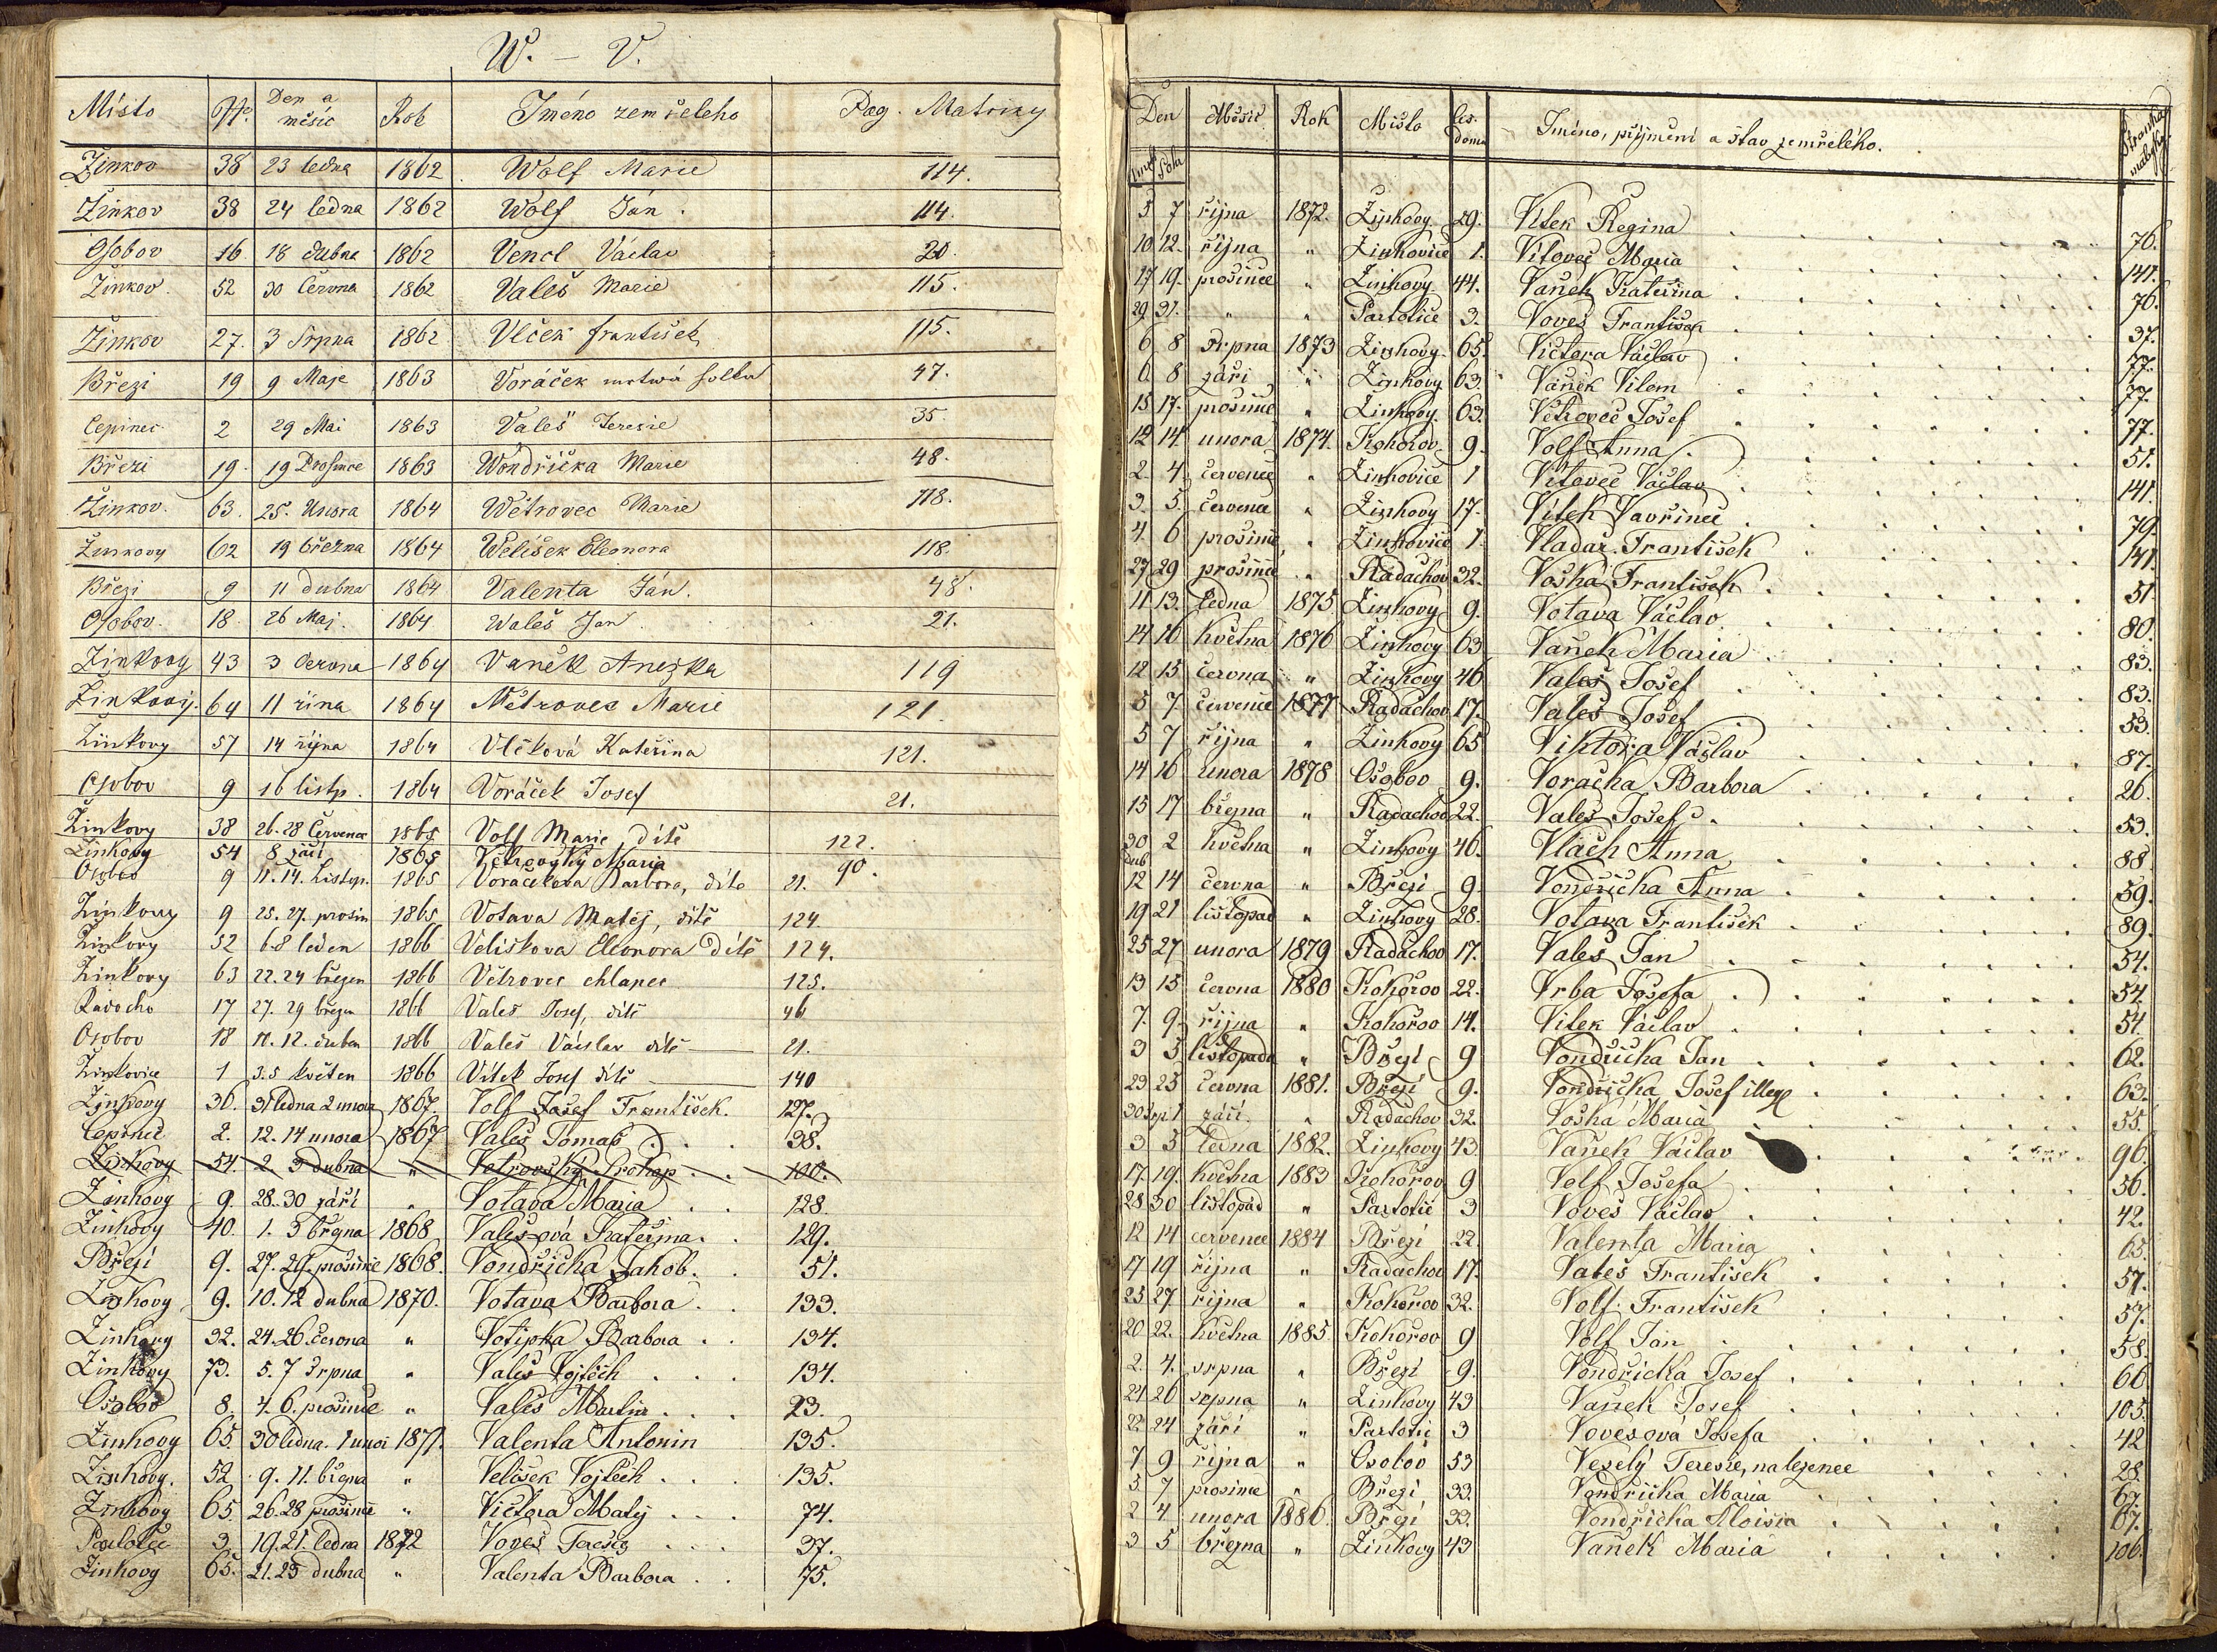 W. – V.
Místo No. Den a měsíc Rok Jméno zemřeleho Pag. Matriky
Žinkov 38 23 ledna 1862 Wolf Marie 114.
Žinkov 38 24 ledna 1862 Wolf Ján. 114.
Osobov 16 18 dubna 1862 Vencl Václav 20.
Žinkov. 52 30 Června 1862 Valeš Marie 115.
Žinkov 27. 3 Srpna 1862 Vlček František 115.
Březi 19 9 Maje 1863 Voráček mrtwá holka 47.
Čepinec 2 29 Mai 1863 Valeš Teresie 35.
Březi 19. 19 Prosince 1863 Wondřička Marie 48.
Žinkov. 63. 25. Unora 1864 Wětrovec Marie 118.
Žinkovy 62 19 března 1864 Welišek Eleonora 118.
Březi 9 11 dubna 1864 Valenta Ján. 48.
Osobov. 18. 26 Maj. 1864 Waleš Jan. 21.
Žinkovy 43 3 Června 1864 Vaněk Anežka 119
Žinkovy. 64 11 řína 1864 Wětrovec Marie 121.
Žinkovy 57 14 října 1864 Vlčková Kateřina 121.
Osobov 9 16 listp. 1864 Voráček Josef 21.
Žinkovy 38 26.28 Července 1865 Volf Marie, dítě 122.
Žinkovy 54 8 září 1865 Větrovský Maria 90.
Osobov 9 11. 14. Listop. 1865 Voráčkova Barbora, díte 21.
Žinkovy 9 25. 27. prosin 1865 Votava Matěj, dítě 124.
Žinkovy 52 6.8 leden 1866 Veliskova Eleonora Dítě 124.
Žinkovy 63 22.24 březen 1866 Větrovec chlapec 125.
Radocho 17 27. 29 březn 1866 Vales Josef, dítě 46
Osobov 18 11. 12. duben 1866 Valeš Václav dítě 21.
Žinkovice 1 3.5 květen 1866 Vítek Josef dítě 140
Žinkovy 36. 31 ledna 2 unora 1867. Volf Josef František. 127.
Čepinec 2. 12. 14 unora 1867 Valeš Tomaš . . . 38.
Žinkovy 54. 2. 3 dubna " Votrovský Prokop . . 100.
Žinkovy 9. 28. 30 září " Votava Maria . . 128.
Žinkovy 40. 1. 3 března 1868 Valeš-ová Kateřina . . 129.
Březí 9. 27. 29. prosince 1868. Vondřička Jakob. . 51.
Žinkovy 9. 10. 12 dubna 1870. Votava Barbora . . 133.
Žinkovy 32. 24.26. června " Votipka Barbora . . 134.
Žinkovy 73. 5. 7 Srpna " Valeš Vojtěch . . . 134.
Osobov 8. 4. 6. prosince " Valeš Martin . . . 23.
Žinkovy 65. 30 ledna. 1 unor 1871. Valenta Antonin 135.
Žinkovy. 52 9. 11. března " Velišek Vojtěch . . . 135.
Žinkovy 65. 26.28 prosince " Victora Matěj . . . 74.
Partotic 3. 19. 21. ledna 1872 Voves Teresie . . . 37.
Žinkovy 65. 21. 23 dubna " Valenta Barbora . . 75.
Den Měsíc Rok Místo čís. domu Jméno, příjmení a stav zemřelého. Stránka matriky
5 7 října 1872. Žinkovy 29. Vítek Regina 76.
10 12. října " Žinkovice 1. Vítovec Maria 141.
17 19. prosince " Žinkovy 44. Vaněk Kateřina 76.
29 31. " " Partotice 3. Voves František 37.
6 8 srpna 1873 Žinkovy 65. Victora Václav 77.
6 8 září " Žinkovy 63. Vaněk Vilem 77.
15 17. prosince " Žinkovy. 63. Větrovec Josef 77.
12 14 unora 1874. Kokořov 9. Volf Anna 51.
2. 4. července " Žinkovice 1 Vítovec Václav 141.
3. 5. července " Žinkovy 17. Vítek Vavřinec 79.
4. 6 prosince " Žinkovice 1 Vladař František 141.
27 29 prosince " Radachov 32. Voska František 51
11 13. ledna 1875. Žinkovy 9. Votava Václav 80.
14 16 května 1876 Žinkovy 63 Vaněk Maria 83.
12 15 června " Žinkovy 46 Valeš Josef 83.
5 7 července 1877 Radachov 17. Valeš Josef 53.
5 7 října " Žinkovy 65 Viktora Václav 87.
14 16 unora 1878 Osobov 9. Voračka Barbora 26.
15 17 března " Radachov 22. Valeš Josef 53.
30 dub 2 května " Žinkovy 46. Vlach Anna 88.
12 14 června " Březi 9. Vondřička Anna 59.
19 21 listopad " Žinkovy 28. Votava František 89.
25 27 unora 1879 Radachov 17. Valeš Jan 54.
13 15 června 1880 Kokořov 22. Vrba Josefa 54.
7. 9. října " Kokořov 14. Vítek Václav 54.
3 5 listopada " Březí 9 Vondřička Jan 62.
23 25 června 1881. Březí 9. Vondřička Josef illeg 63.
30 srp 1 září " Radachov 32. Voska Maria 55.
3 5 ledna 1882. Žinkovy 43. Vaněk Václav 96.
17. 19. května 1883 Kokořov 9 Volf Josefa 56.
28 30 listopad " Partotic 3 Voves Václav 42.
12 14 července 1884 Březí 22. Valenta Maria 65.
17 19 října " Radachov 17. Valeš František 57.
25 27 října " Kokořov 32. Volf František 57.
20 22. května 1885. Kokořov 9 Volf Jan 58.
2 4. srpna " Březí 9. Vondřička Josef 66.
24 26 srpna " Žinkovy 43 Vaněk Josef 105.
22 24 září " Partotic 3 Vovesová Josefa 42
7 9 října " Osobov 53 Veselý Teresie, nalezenec 28.
5 7 prosince " Březí 33. Vondřička Maria 67.
2 4 unora 1886. Březí 33. Vondřička Aloisia 67.
3 5 března " Žinkovy 43 Vaněk Maria 106.